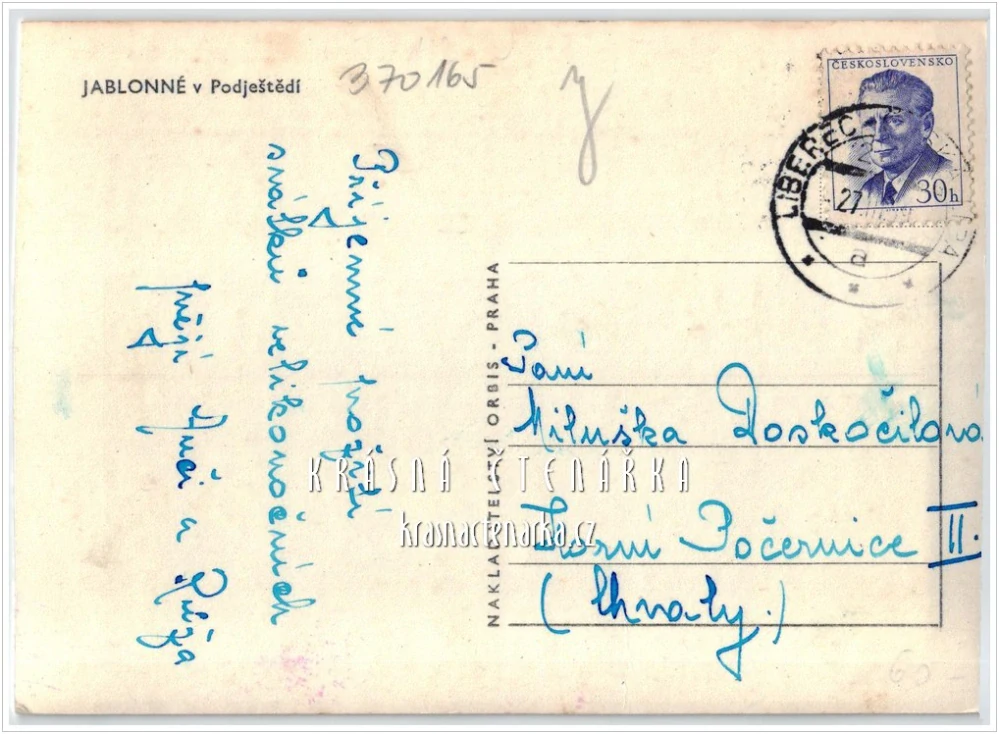 JABLONNÉ v Podještědí
370165
y
ČESKOSLOVENSKO
30h
LIBEREC
27
a
Příjemné prožití
svátků velikonočních
přejí Anči a Růža
NAKLADATELSTVÍ ORBIS - PRAHA
Paní
Miluška Doskočilová
Horní Počernice II.
(Chvaly.)
KRÁSNÁ ČTENÁŘKA
krasnactenarka.cz
60-